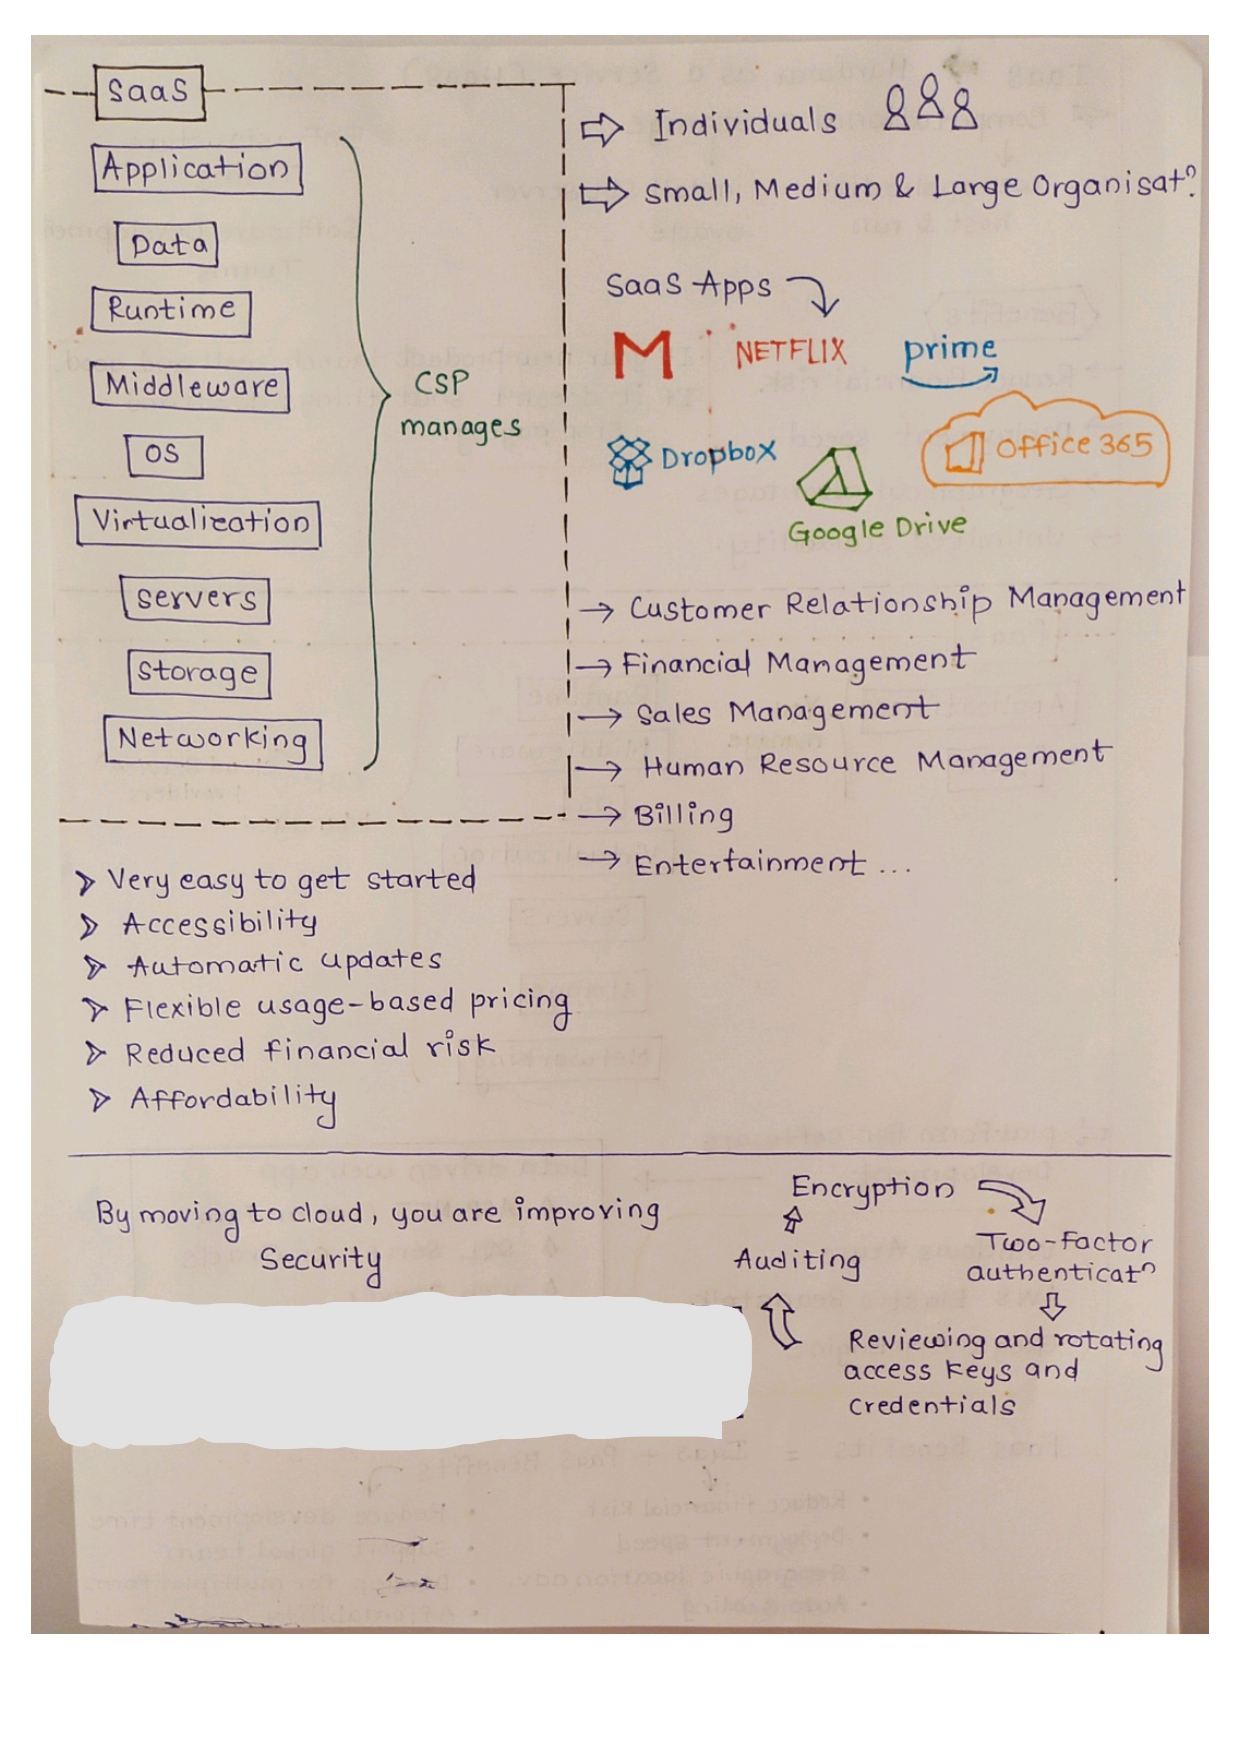 SaaS
Application
Data
Runtime
Middleware
OS
Virtualization
Servers
Storage
Networking
CSP
manages
Individuals
Small, Medium & Large Organisatn
SaaS Apps
M
NETFLIX
prime
Dropbox
Google Drive
Office 365
Customer Relationship Management
Financial Management
Sales Management
Human Resource Management
Billing
Entertainment ...
Very easy to get started
Accessibility
Automatic updates
Flexible usage-based pricing
Reduced financial risk
Affordability
By moving to cloud, you are improving
Security
Encryption
Auditing
Two-factor
authenticatn
Reviewing and rotating
access keys and
credentials